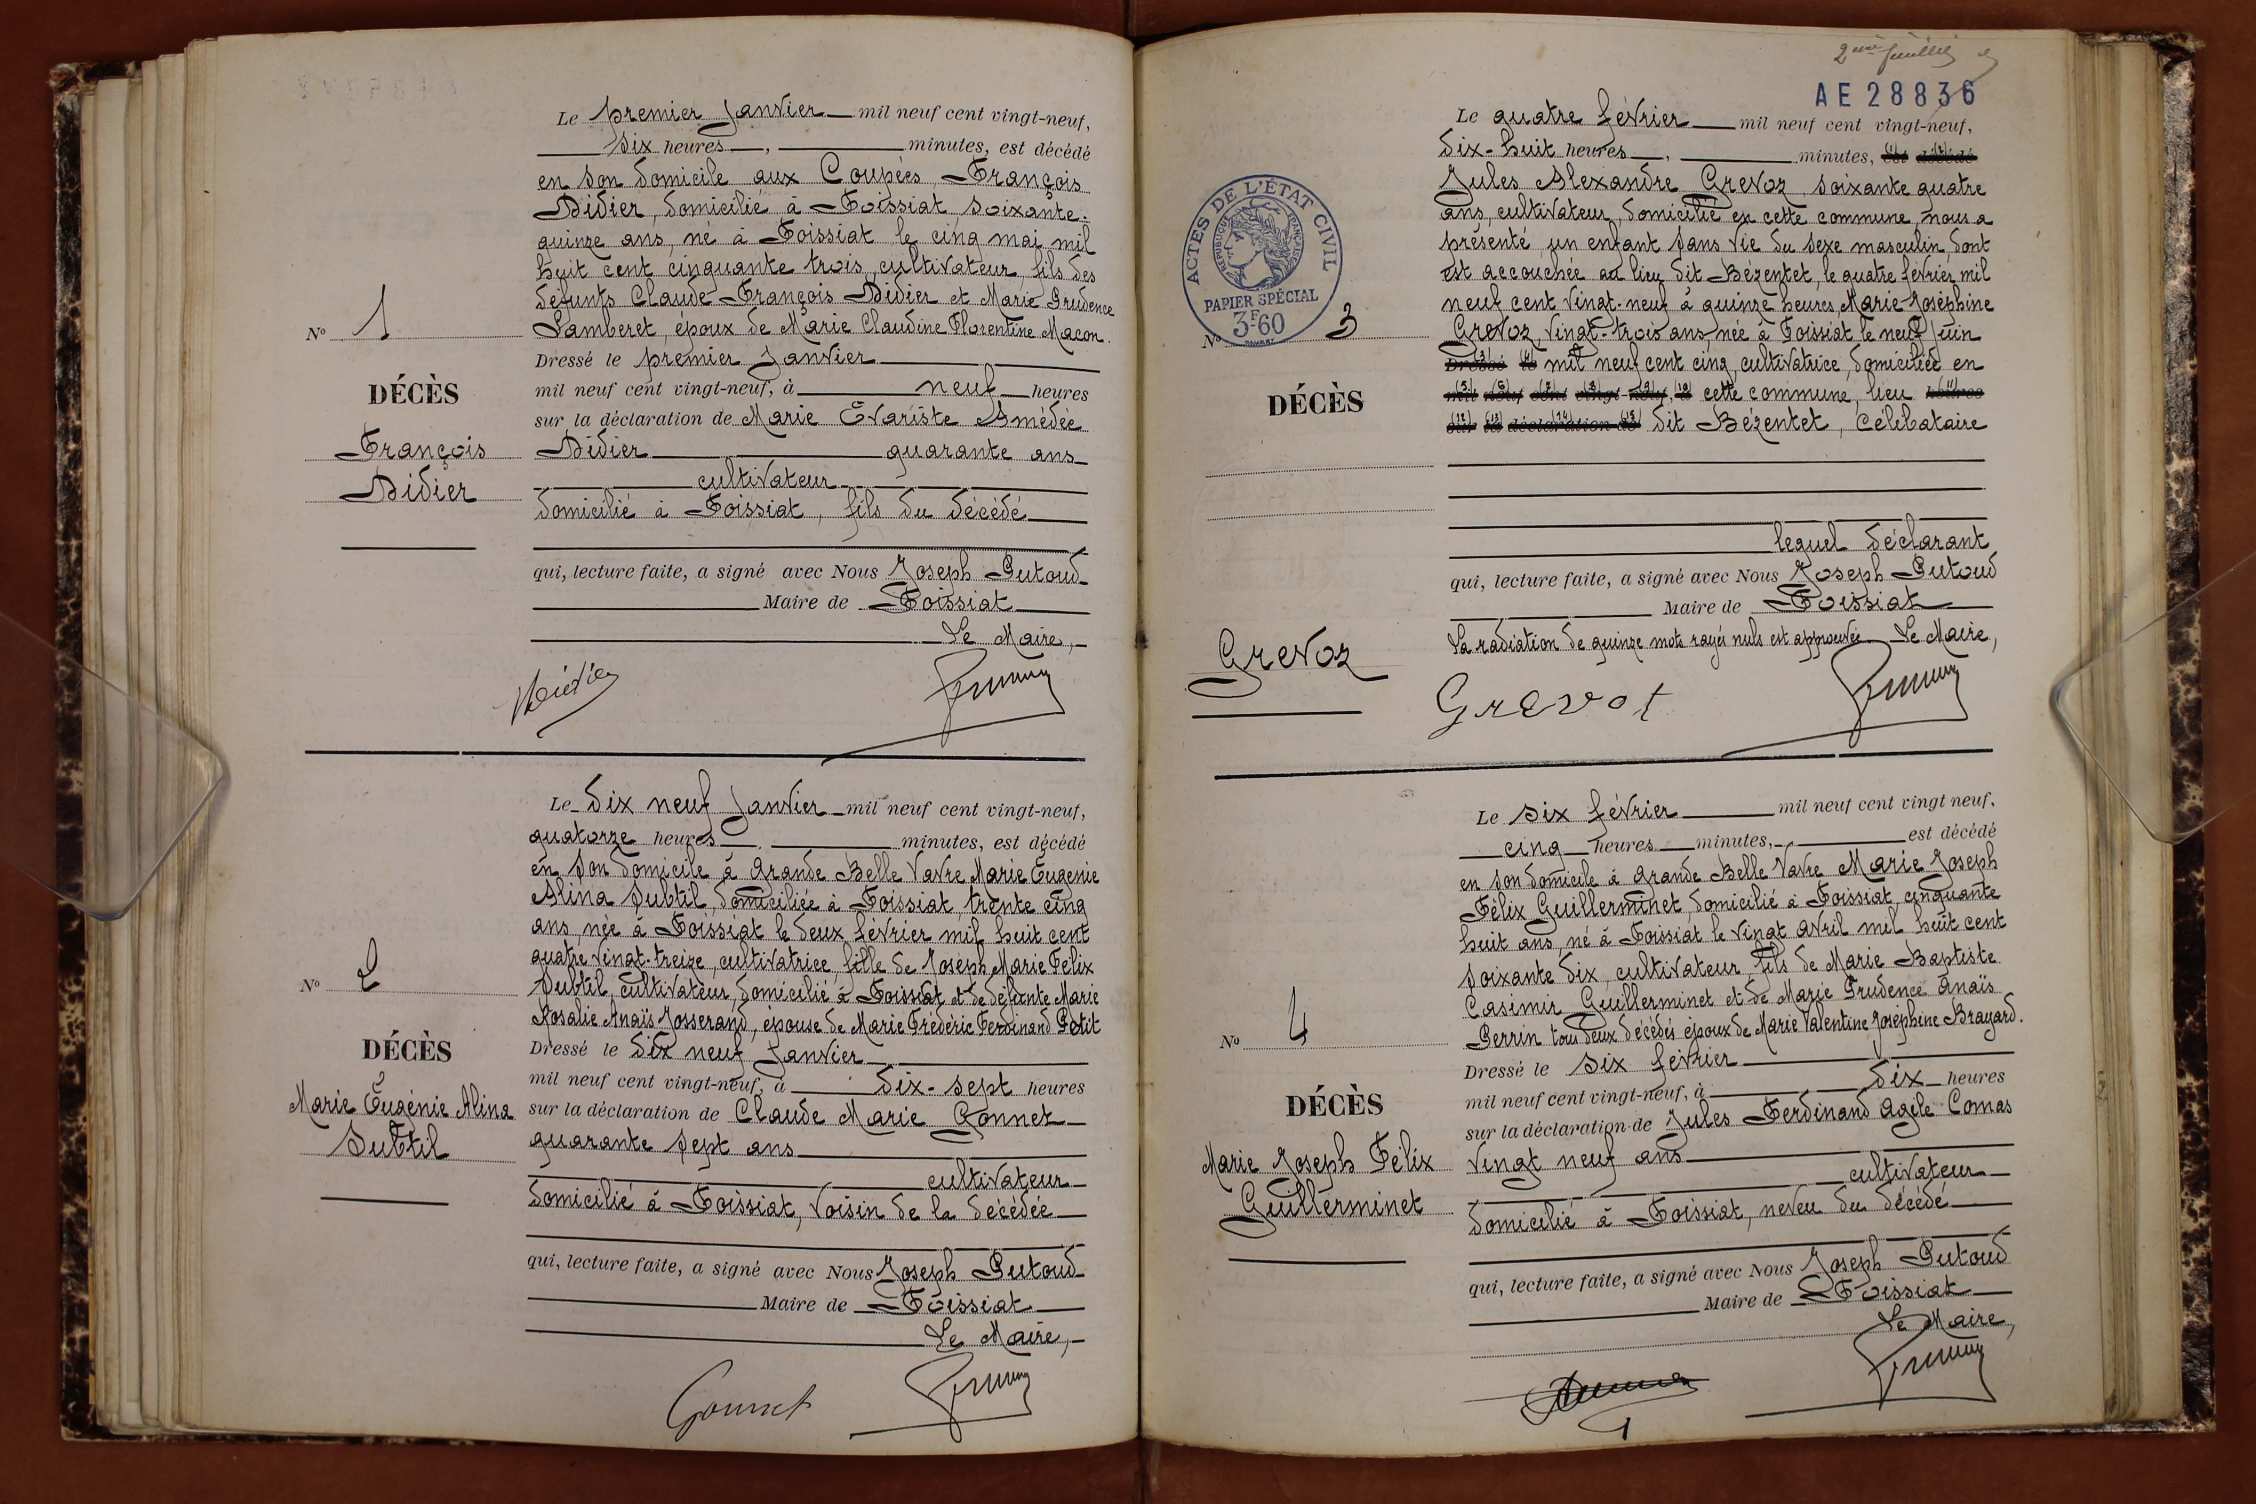 Le premier Janvier mil neuf cent vingt-neuf,
six heures, minutes, est décédé
en son domicile aux Coupées, François
Didier, domicilié à Foissiat soixante-
quinze ans, né à Foissiat le cinq mai mil
huit cent cinquante trois, cultivateur, fils des
défunts Claude François Didier et Marie Prudence
Lamberet, époux de Marie Claudine Florentine Macon.
Nº 1
Dressé le premier Janvier
DÉCÈS
mil neuf cent vingt-neuf, à neuf heures
sur la déclaration de Marie Évariste Amédée
François
Didier quarante ans
Didier
cultivateur
domicilié à Foissiat, fils du décédé
qui, lecture faite, a signé avec Nous Joseph Putoud
Maire de Foissiat
Le Maire,
Didier
Le dix neuf Janvier mil neuf cent vingt-neuf,
quatorze heures, minutes, est décédé
en son domicile à Grande Belle Vavre Marie Eugénie
Alina Subtil, domiciliée à Foissiat, trente cinq
ans, née à Foissiat le deux février mil huit cent
quatre vingt-treize, cultivatrice, fille de Joseph Marie Félix
Subtil, cultivateur, domicilié à Foissiat et de défunte Marie
Nº 2
Rosalie Anaïs Josserand, épouse de Marie Frédéric Ferdinand Petit
DÉCÈS
Dressé le dix neuf Janvier
mil neuf cent vingt-neuf, à dix-sept heures
Marie Eugénie Alina
sur la déclaration de Claude Marie Gonnet
Subtil
quarante sept ans
cultivateur
domicilié à Foissiat, voisin de la décédée
qui, lecture faite, a signé avec Nous Joseph Putoud
Maire de Foissiat
Le Maire,
Gonnet
2ème feuillet
AE 28836
Le quatre février mil neuf cent vingt-neuf,
dix-huit heures, minutes, est décédé
Jules Alexandre Grevoz, soixante quatre
ans, cultivateur, domicilié en cette commune nous a
présenté un enfant sans vie du sexe masculin, dont
est accouchée au lieu dit Bézentet, le quatre février mil
neuf cent vingt-neuf à quinze heures, Marie Joséphine
Grevoz, vingt-trois ans, née à Foissiat le neuf Juin
Dressé le mil neuf cent cinq, cultivatrice, domiciliée en
mil neuf cent vingt-neuf, à cette commune, lieu heures
sur la déclaration de dit Bézentet, célibataire
ACTES DE L'ÉTAT CIVIL
RÉPUBLIQUE FRANÇAISE
PAPIER SPÉCIAL
3F60
Nº 3
DÉCÈS
lequel déclarant
qui, lecture faite, a signé avec Nous Joseph Putoud
Maire de Foissiat
La radiation de quinze mots rayés nuls est approuvée Le Maire,
Grevoz
Grevoz
Le six février mil neuf cent vingt neuf,
cinq heures minutes, est décédé
en son domicile à Grande Belle Vavre Marie Joseph
Félix Guillerminet, domicilié à Foissiat, cinquante
huit ans, né à Foissiat le vingt avril mil huit cent
soixante dix, cultivateur, fils de Marie Baptiste
Casimir Guillerminet et de Marie Prudence Anaïs
Perrin tous deux décédés époux de Marie Valentine Joséphine Brayard.
Nº 4
Dressé le six février
DÉCÈS
mil neuf cent vingt-neuf, à dix heures
sur la déclaration de Jules Ferdinand Agile Comas
Marie Joseph Félix
vingt neuf ans
Guillerminet
cultivateur
domicilié à Foissiat, neveu du décédé
qui, lecture faite, a signé avec Nous Joseph Putoud
Maire de Foissiat
Le Maire,